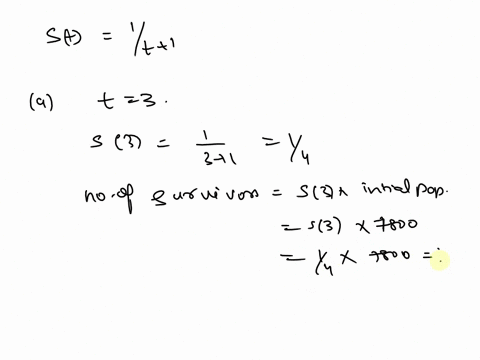 S(t) = 1/t+1
(a) t = 3.
S(3) = 1/3+1 = 1/4
no. of survivors = S(3) x initial pop.
= S(3) x 7800
= 1/4 x 7800 =